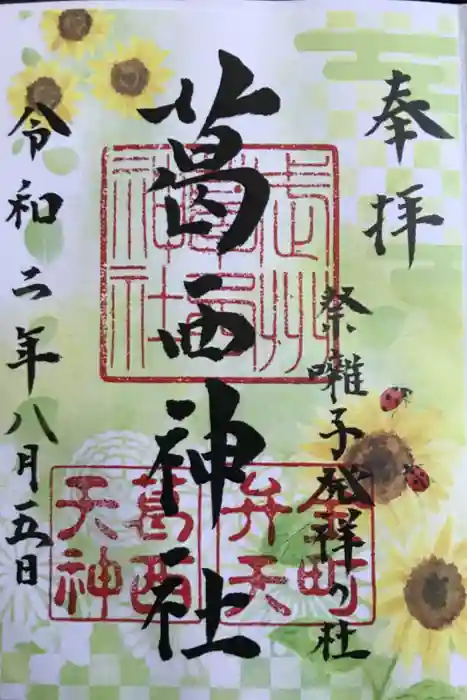 奉拝
祭囃子発祥の社
葛西神社
令和二年八月五日
武州葛西神社
金町弁天
葛西天神